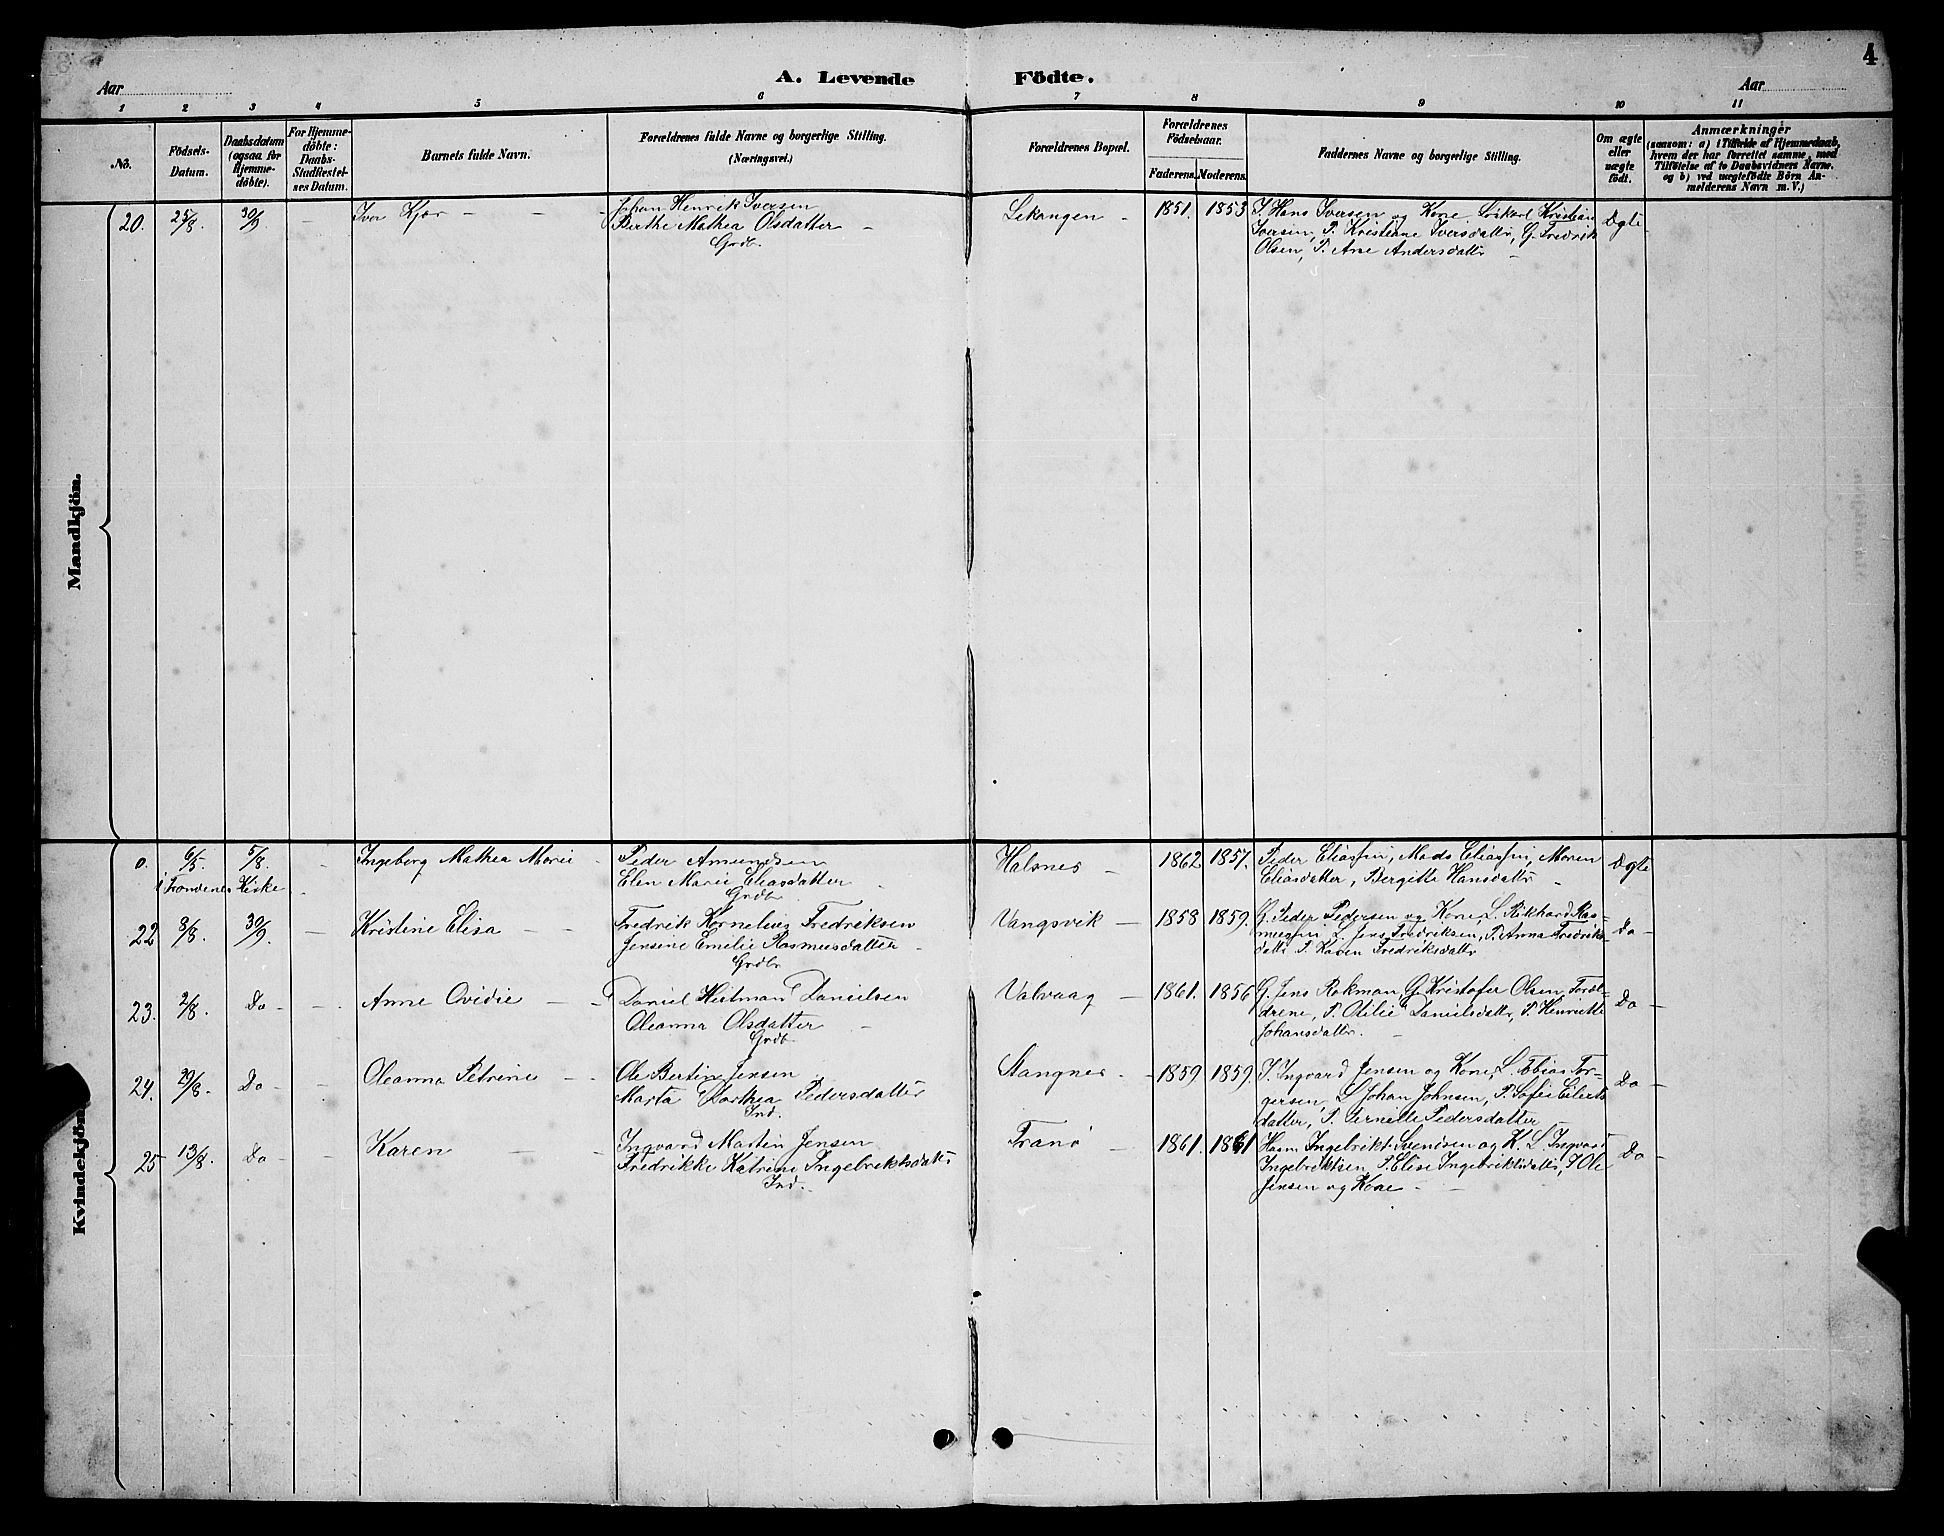 4
A. Levende Födte.
Aar
Aar
1 2 3 4 5 6 7 8 9 10 11
No.
Födsels-
Datum.
Daabsdatum
(ogsaa for
Hjemme-
döbte).
For Hjemme-
döbte:
Daabs-
Stadfæstel-
ses Datum.
Barnets fulde Navn.
Forældrenes fulde Navne og borgerlige Stilling.
(Næringsvei.)
Forældrenes Bopæl.
Forældrenes
Födselsaar.
Faderens. Moderens.
Faddernes Navne og borgerlige Stilling.
Om ægte
eller
uægte
födt.
Anmærkninger
(saasom: a) i Tilfælde af Hjemmedaab,
hvem der har forrettet samme, med
Tilföielse af to Daabsvidners Navne.
og b) ved uægtefödte Börn An-
melderens Navn m. V.)
Mandkjön.
20. 25/8. 30/9 — Iver Kjær — — —
Johan Henrik Iversen
Berthe Mathea Olsdatter —
Grdb.
Lekangen — 1851. 1853
J. Hans Iversen og Kone, Kristian
Iversen, P. Kristiane Iversdattr, G. Fredrik
Olsen, P. Ane Andersdattr —
Ægte
Kvindekjön.
0. 6/5 5/8. — Ingeborg Mathea Marie —
i Trondenes Kirke
Peder Amundsen
Elen Marie Eliasdatter —
Grdb.
Halsnes — 1862 1857.
Peder Eliassen, Mads Eliassen, Maren
Eliasdatter, Bergitte Hansdattr —
Ægte
22 8/8. 30/9 — Kristine Elisa — —
Fredrik Kornelius Fredriksen
Jensine Emelie Rasmusdatter —
Grdbr
Vangsvik — 1858 1859.
G. Peder Pedersen og Kone, L. Rikhard Ras-
mussen, L. Jens Fredriksen, P. Anna Fredriks-
dattr P. Karen Fredriksdattr
Do —
23. 2/8. Do — — Anne Ovidie — —
Daniel Heitman Danielsen
Oleanna Olsdatter —
Grdb.
Valvaag — 1861. 1856
G. Jens Rokman, G. Kristofer Olsen, Foræl-
drene, P. Otilie Danielsdattr, P. Henriette
Johansdattr. —
Do —
24. 29/8 — Do — — Oleanna Petrine — —
Ole Bertin Jensen —
Marta Dorthea Pedersdatter
Ind.
Stangnes — 1859 1859.
J. Ingvard Jensen og Kone, L. Tobias Tor-
gersen, L. Johan Johnsen, P. Sofie Eilerts
datter, P. Pernille Pedersdatter
Do —
25 13/8. Do — — Karen — —
Ingvard Martin Jensen
Fredrikke Katrine Ingebrektsdattr
Ind. —
Tranö — 1861. 1861
Hsm. Ingebrikt Svendsen og K. L. Ingvard
Ingebriktsen, P. Elise Ingebriktsdattr, J Ole
Jensen og Kone — —
Do —